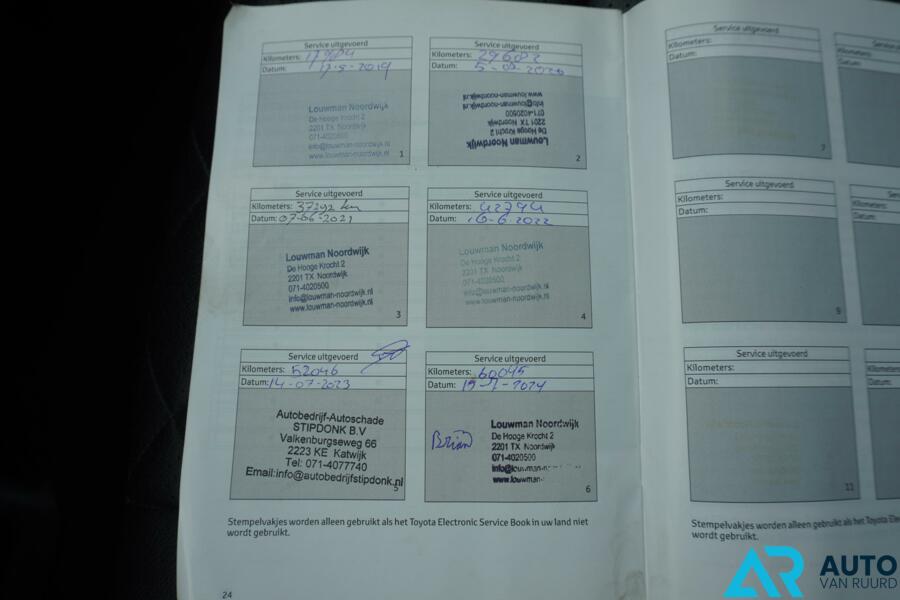 Service uitgevoerd
Kilometers: 17984
Datum: 17-5-2019
Louwman Noordwijk
De Hooge Krocht 2
2201 TX Noordwijk
071-4020500
info@louwman-noordwijk.nl
www.louwman-noordwijk.nl
1
Service uitgevoerd
Kilometers: 29682
Datum:
Louwman Noordwijk
De Hooge Krocht 2
2201 TX Noordwijk
071-4020500
info@louwman-noordwijk.nl
www.louwman-noordwijk.nl
2
Service uitgevoerd
Kilometers: 37292 km
Datum: 07-06-2021
Louwman Noordwijk
De Hooge Krocht 2
2201 TX Noordwijk
071-4020500
info@louwman-noordwijk.nl
www.louwman-noordwijk.nl
3
Service uitgevoerd
Kilometers: 42794
Datum: 16-6-2022
Louwman Noordwijk
De Hooge Krocht 2
2201 TX Noordwijk
071-4020500
info@louwman-noordwijk.nl
www.louwman-noordwijk.nl
4
Service uitgevoerd
Kilometers: 52046
Datum: 14-07-2023
Autobedrijf-Autoschade
STIPDONK B.V
Valkenburgseweg 66
2223 KE Katwijk
Tel: 071-4077740
Email:info@autobedrijfstipdonk.nl
5
Service uitgevoerd
Kilometers: 60045
Datum:
Brian
Louwman Noordwijk
De Hooge Krocht 2
2201 TX Noordwijk
071-4020500
6
Stempelvakjes worden alleen gebruikt als het Toyota Electronic Service Book in uw land niet
wordt gebruikt.
24
Service uitgevoerd
Kilometers:
Datum:
7
Kilometers:
Datum:
Service uitgevoerd
Kilometers:
Datum:
9
Datum:
Service uitgevoerd
Kilometers:
Datum:
11
Datum:
Stempelvakjes worden alleen gebruikt als het Toyota Electronic
wordt gebruikt.
AR AUTO
VAN RUURD